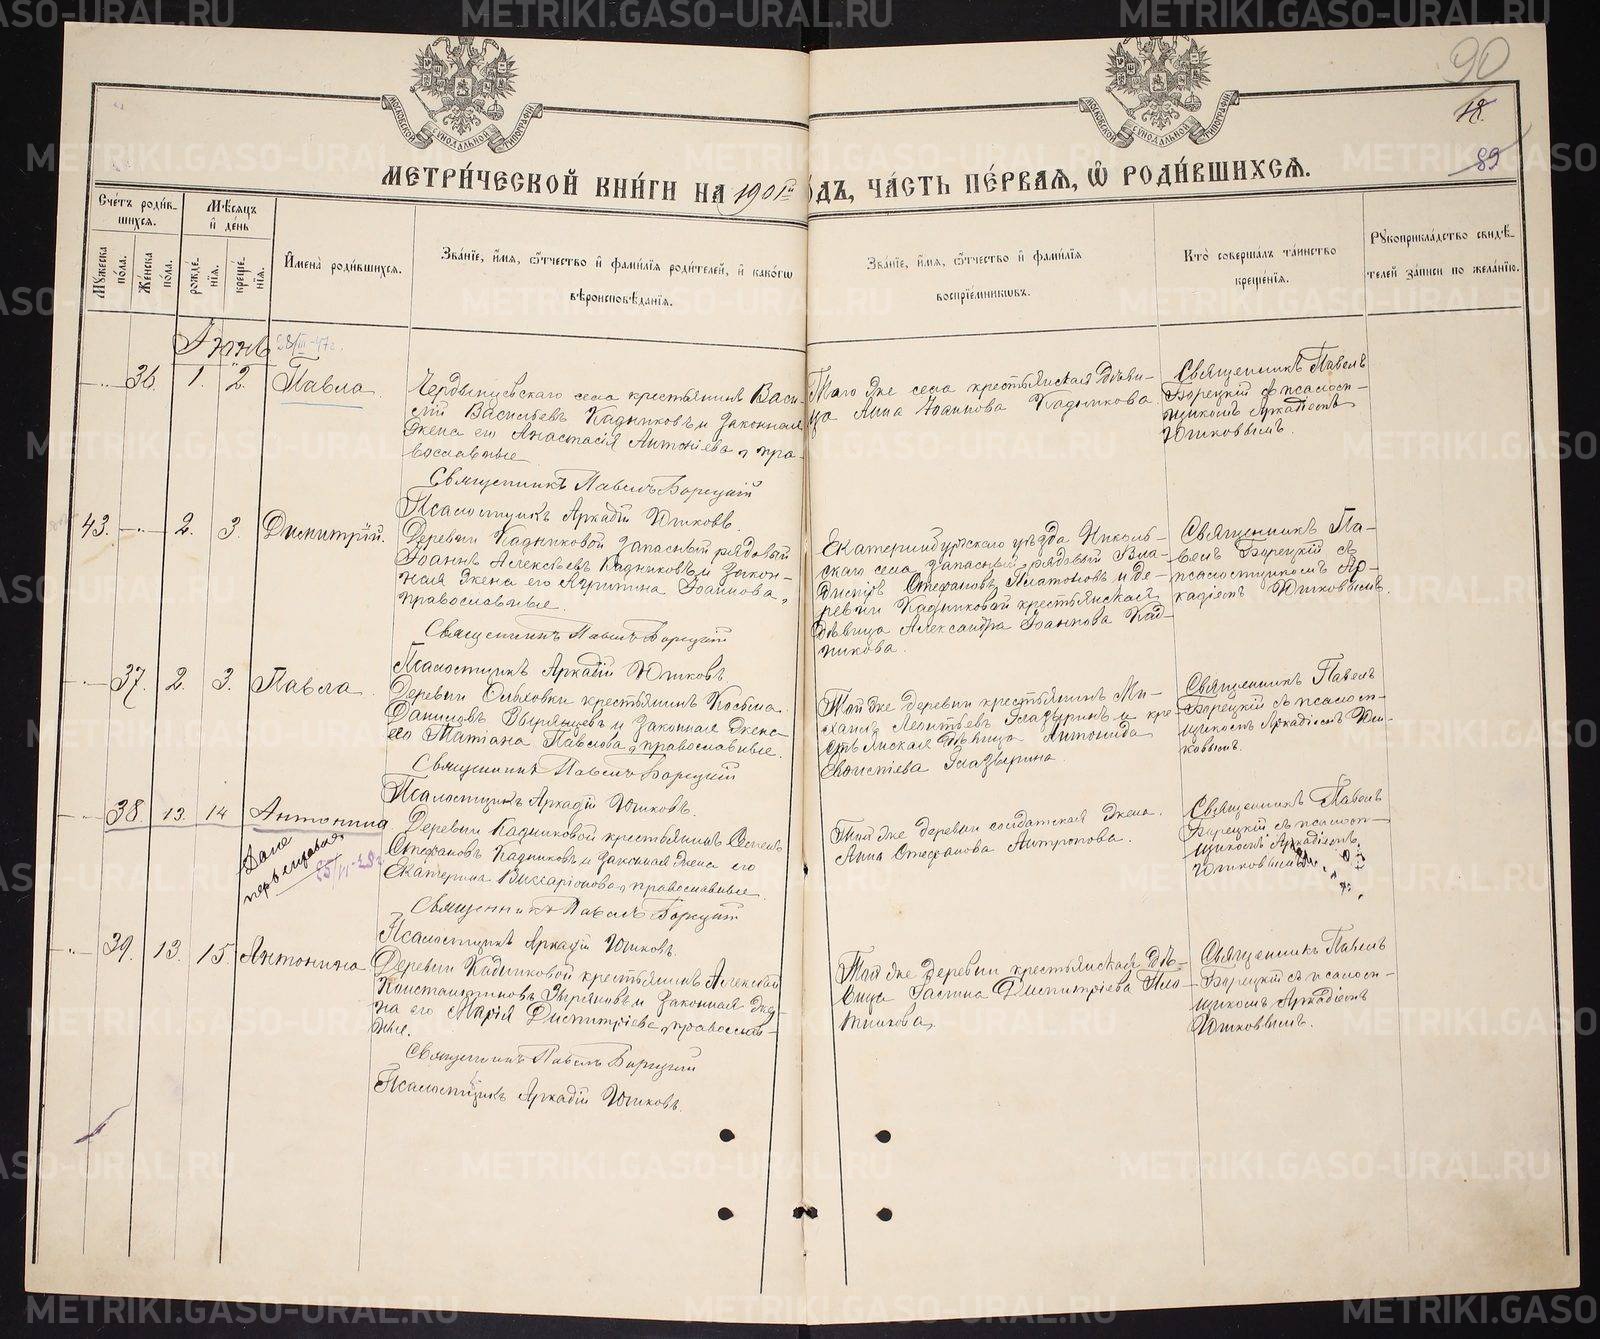 METRIKI.GASO-URAL.RU
90
18.
89
МОСКОВСКОЙ СѴНОДАЛЬНОЙ ТИПОГРАФІИ
МОСКОВСКОЙ СѴНОДАЛЬНОЙ ТИПОГРАФІИ
МЕТРИ́ЧЕСКОЙ КНИ́ГИ НА 1901й
ОДЪ, ЧА́СТЬ ПЕ́РВАЯ, Ѽ РОДИ́ВШИХСЯ.
Сче́тъ роди́в-
шихся.
Мѣ́сяцъ
и҆ де́нь
Мꙋ́жеска
по́ла.
Же́нска
пола.
рожде́-
нїя.
креще́-
нїя.
И҆мена̀ роди́вшихся.
Зва́нїе, и҆́мя, ѻ҆́тчество и҆ фами́лїя роди́телей, и҆ како́гѡ
вѣроисповѣ́данїя.
Зва́нїе, и҆́мя, ѻ҆́тчество и҆ фами́лїя
воспрїе́мникѡвъ.
Кто̀ соверша́лъ та́инство
креще́нїя.
Рꙋкоприкла́дство свидѣ́-
телей за́писи по жела́нїю.
Іюнь
28/III-47г.
—··— 36. 1. 2. Павла.
села крестьянинъ Васи-
лій Васильевъ Кадниковъ и законная
жена его Анастасія Антоніева, пра-
вославные
Священникъ Павелъ Борецкій
Псаломщикъ Аркадій Юшковъ.
Того же села крестьянская дѣви-
ца Анна Іоаннова Кадникова.
Священникъ Павелъ
Борецкій съ псалом-
щикомъ Аркадіемъ
Юшковымъ.
43. —··— 2. 3. Димитрій.
Деревни Кадниковой запасный рядовый
Іоаннъ Алексѣевъ Кадниковъ и закон-
ная жена его Агриппина Іоаннова,
православные.
Священникъ Павелъ Борецкій
Псаломщикъ Аркадій Юшковъ
Екатеринбургскаго уѣзда Николь-
скаго села запасный рядовый Вла-
диміръ Стефановъ Платоновъ и де-
ревни Кадниковой крестьянская
дѣвица Александра Іоаннова Кад-
никова.
Священникъ Па-
велъ Борецкій съ
псаломщикомъ Ар-
кадіемъ Юшковымъ.
—··— 37. 2. 3. Павла.
Деревни Ольховки крестьянинъ Косьма
Даниловъ Звырянцевъ и законная жена
его Татіана Павлова, православные.
Священникъ Павелъ Борецкій
Псаломщикъ Аркадій Юшковъ.
Той же деревни крестьянинъ Ми-
хаилъ Леонтьевъ Глазыринъ и кре-
стьянская дѣвица Антонида
Глазырина.
Священникъ Павелъ
Борецкій съ псалом-
щикомъ Аркадіемъ Юш-
ковымъ.
—··— 38. 13. 14 Антонина
Деревни Кадниковой крестьянинъ Семенъ
Стефановъ Кадниковъ и законная жена его
Екатерина Виссаріонова, православные
Священникъ Павелъ Борецкій
Псаломщикъ Аркадій Юшковъ.
25/VI-28г
Той же деревни солдатская жена
Анна Стефанова Антропова.
Священникъ Павелъ
Борецкій съ псалом-
щикомъ Аркадіемъ
Юшковымъ.
—··— 39. 13. 15. Антонина
Деревни Кадниковой крестьянинъ Алексѣй
Константиновъ и законная же-
на его Марія Димитріева, православ-
ные.
Священникъ Павелъ Борецкій
Псаломщикъ Аркадій Юшковъ.
Той же деревни крестьянская дѣ-
вица Димитріева Пло-
тникова.
Священникъ Павелъ
Борецкій съ псалом-
щикомъ Аркадіемъ
Юшковымъ.